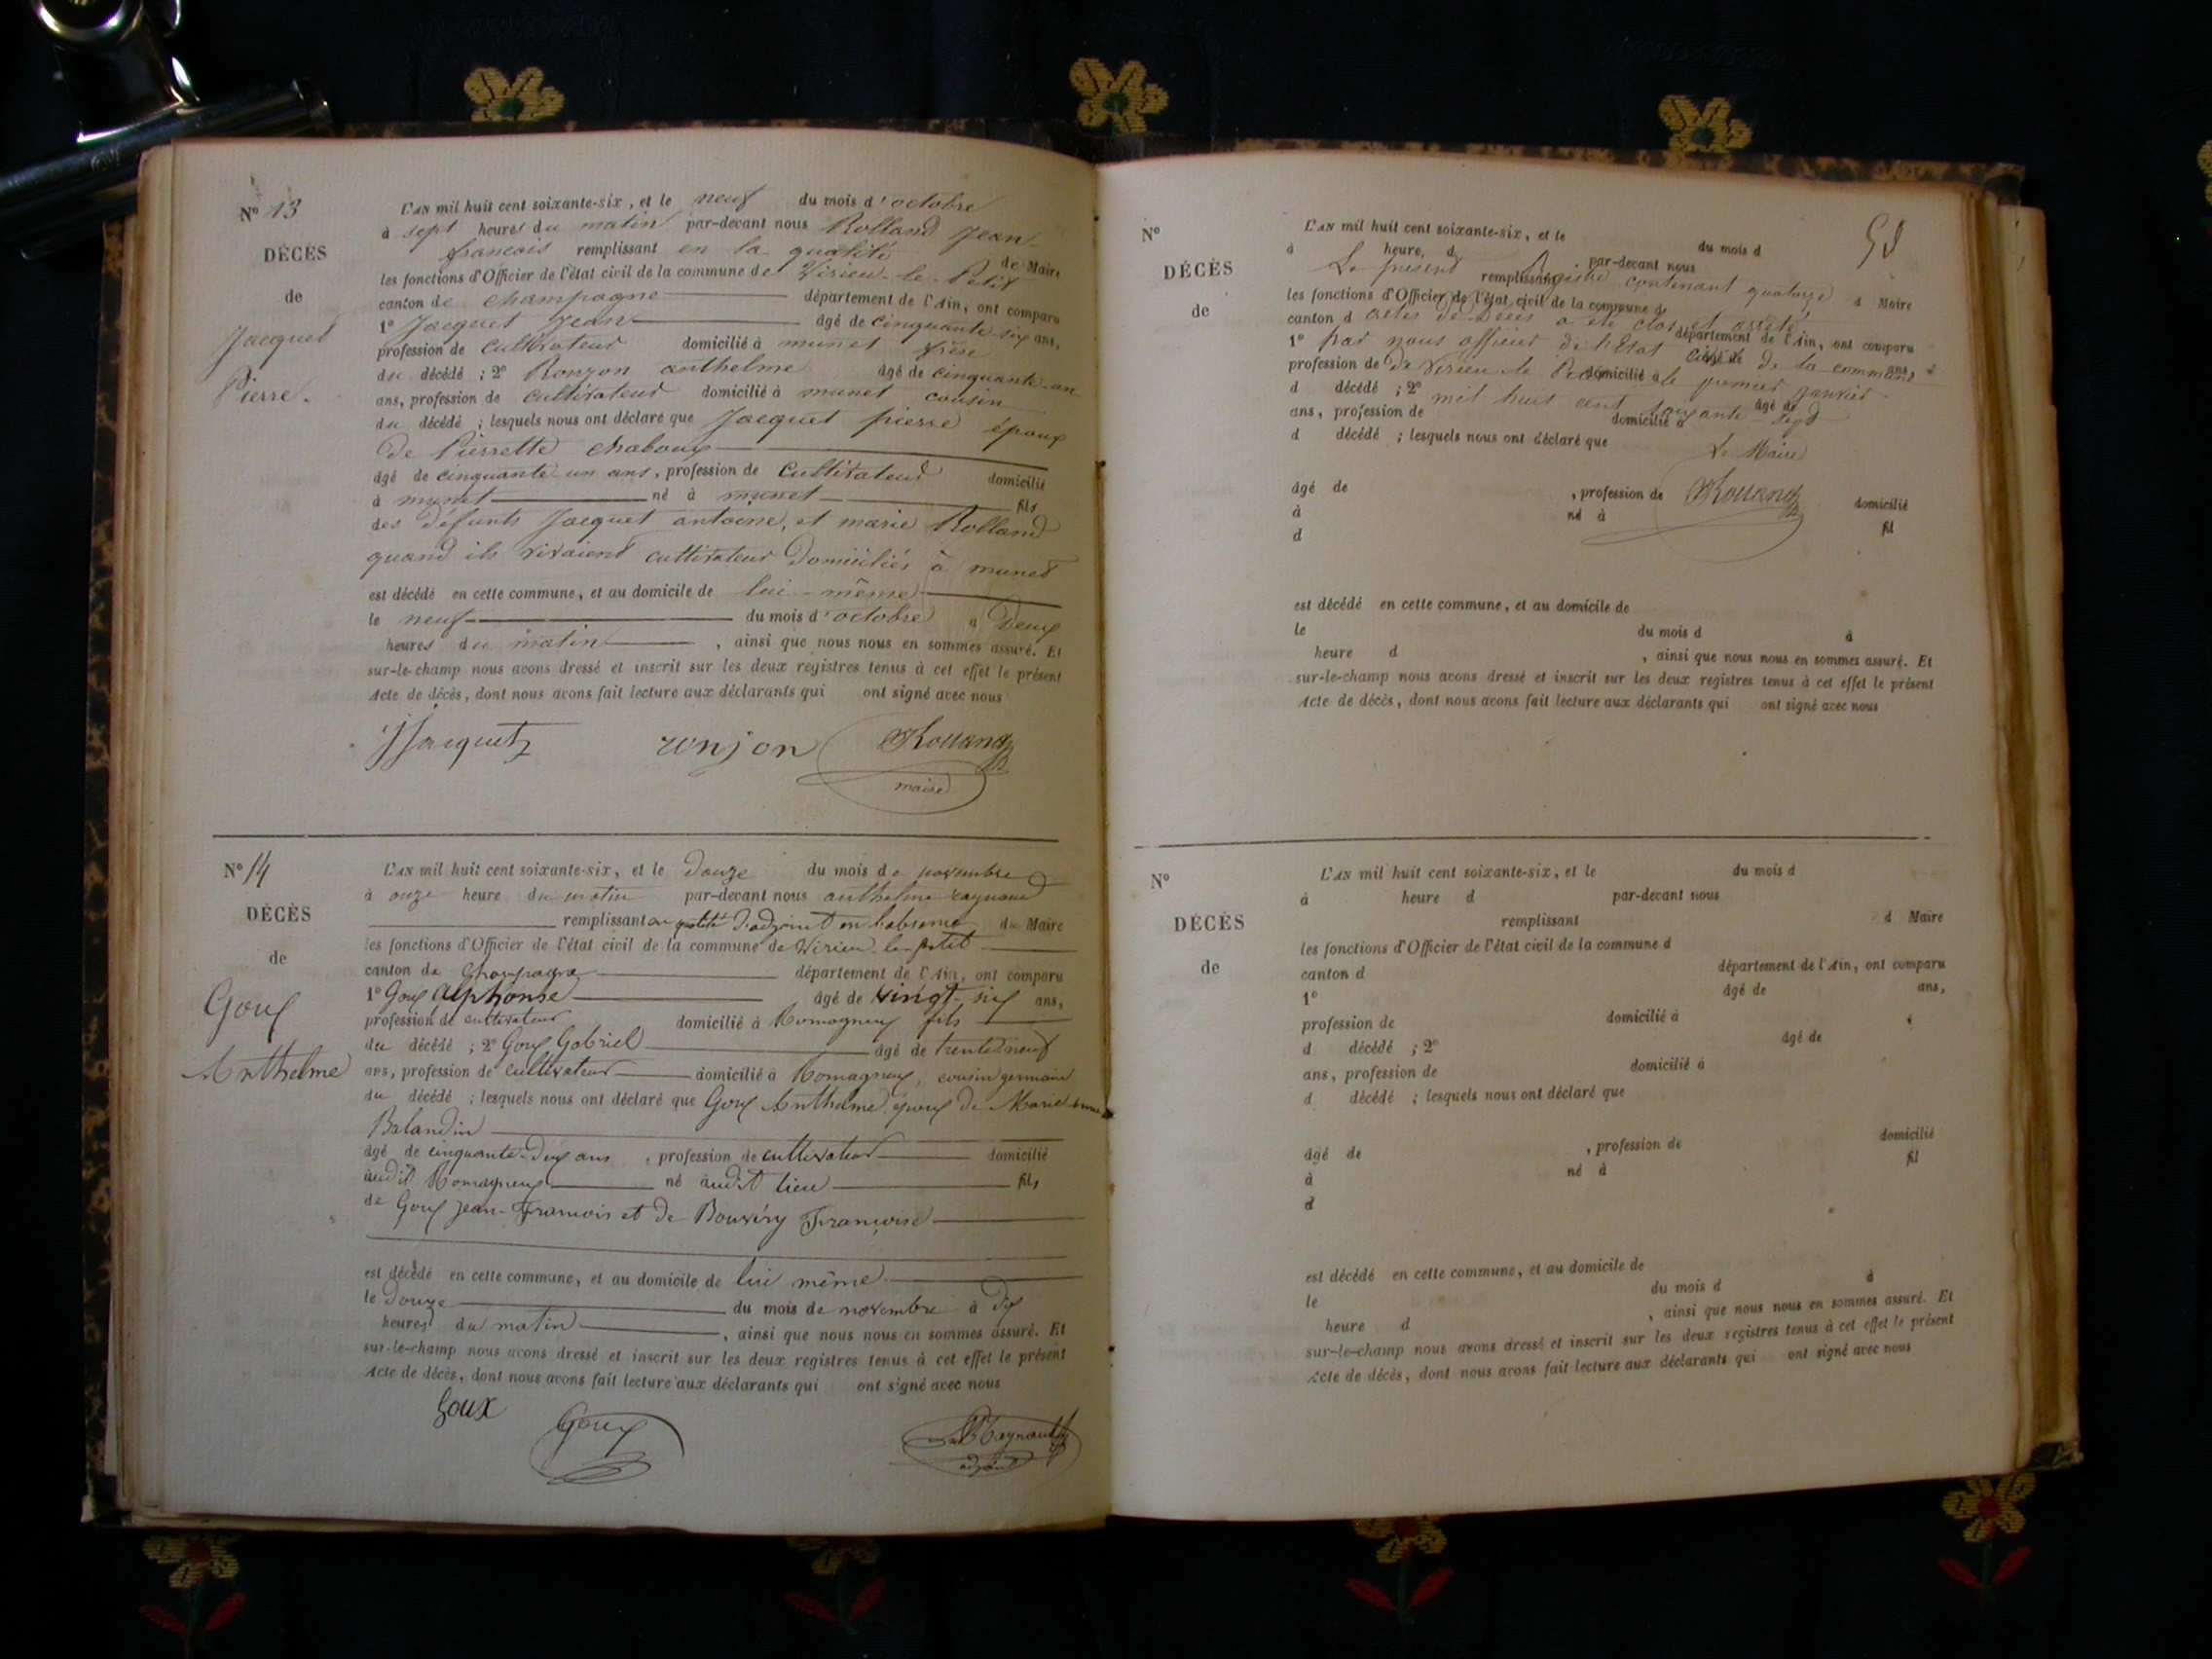 N° 13
DÉCÈS
de
Jacquet
Pierre.
L'AN mil huit cent soixante-six, et le neuf du mois d'octobre
à sept heures du matin par-devant nous Rolland Jean
francois remplissant en la qualité de Maire
les fonctions d'Officier de l'état civil de la commune de Virieu-le-Petit
canton de champagne département de l'Ain, ont comparu
1° Jacquet Jean âgé de cinquante-six ans,
profession de cultivateur domicilié à munet frère
du décédé ; 2° Ronjon anthelme âgé de cinquante-un
ans, profession de cultivateur domicilié à munet cousin
du décédé ; lesquels nous ont déclaré que Jacquet pierre époux
de Pierrette Chaboux
âgé de cinquante un ans, profession de cultivateur domicilié
à munet né à munet fils
des défunts Jacquet antoine, et marie Rolland
quand ils vivaient cultivateur domiciliés à munet
est décédé en cette commune, et au domicile de lui-même
le neuf du mois d'octobre à Deux
heures du matin, ainsi que nous nous en sommes assuré. Et
sur-le-champ nous avons dressé et inscrit sur les deux registres tenus à cet effet le présent
Acte de décès, dont nous avons fait lecture aux déclarants qui ont signé avec nous
Jacquet ronjon Rolland
maire
N° 14
DÉCÈS
de
Goux
Anthelme
L'AN mil huit cent soixante-six, et le Douze du mois de novembre
à onze heure du matin par-devant nous anthelme raynaud
remplissant en qualité d'adjoint en l'absence du Maire
les fonctions d'Officier de l'état civil de la commune de Virieu-le-petit
canton de Champagne département de l'Ain, ont comparu
1° Goux Alphonse âgé de vingt-six ans,
profession de cultivateur domicilié à Romagneux fils
du décédé ; 2° Goux Gabriel âgé de trente neuf
ans, profession de cultivateur domicilié à Romagneux, cousin germain
du décédé ; lesquels nous ont déclaré que Goux Anthelme époux de Marie
Balandin
âgé de cinquante-Deux ans, profession de cultivateur domicilié
audit Romagneux né audit lieu fils
de Goux Jean-François et de Bouvéry Françoise
est décédé en cette commune, et au domicile de lui même
le Douze du mois de novembre à Dix
heures du matin, ainsi que nous nous en sommes assuré. Et
sur-le-champ nous avons dressé et inscrit sur les deux registres tenus à cet effet le présent
Acte de décès, dont nous avons fait lecture aux déclarants qui ont signé avec nous
Goux Goux Raynaud
adjoint
N°
DÉCÈS
de
L'AN mil huit cent soixante-six, et le du mois d
à heure d par-devant nous
Le présent Registre contenant quatorze
remplissant d Maire
les fonctions d'Officier de l'état civil de la commune d
canton d département de l'Ain, ont comparu
actes de Décès a été clos et arrêté
1° âgé de ans,
par nous officier de l'état civil de la commune
profession de domicilié à
de Virieu le Petit le premier janvier
d décédé ; 2° âgé de
mil huit cent soixante-sept
ans, profession de domicilié à
d décédé ; lesquels nous ont déclaré que
Le Maire
âgé de , profession de domicilié
Rolland
à né à fil
d
est décédé en cette commune, et au domicile de
le du mois d à
heure d , ainsi que nous nous en sommes assuré. Et
sur-le-champ nous avons dressé et inscrit sur les deux registres tenus à cet effet le présent
Acte de décès, dont nous avons fait lecture aux déclarants qui ont signé avec nous
N°
DÉCÈS
de
L'AN mil huit cent soixante-six, et le du mois d
à heure d par-devant nous
remplissant d Maire
les fonctions d'Officier de l'état civil de la commune d
canton d département de l'Ain, ont comparu
1° âgé de ans,
profession de domicilié à
d décédé ; 2° âgé de
ans, profession de domicilié à
d décédé ; lesquels nous ont déclaré que
âgé de , profession de domicilié
à né à fil
d
est décédé en cette commune, et au domicile de
le du mois d à
heure d , ainsi que nous nous en sommes assuré. Et
sur-le-champ nous avons dressé et inscrit sur les deux registres tenus à cet effet le présent
Acte de décès, dont nous avons fait lecture aux déclarants qui ont signé avec nous